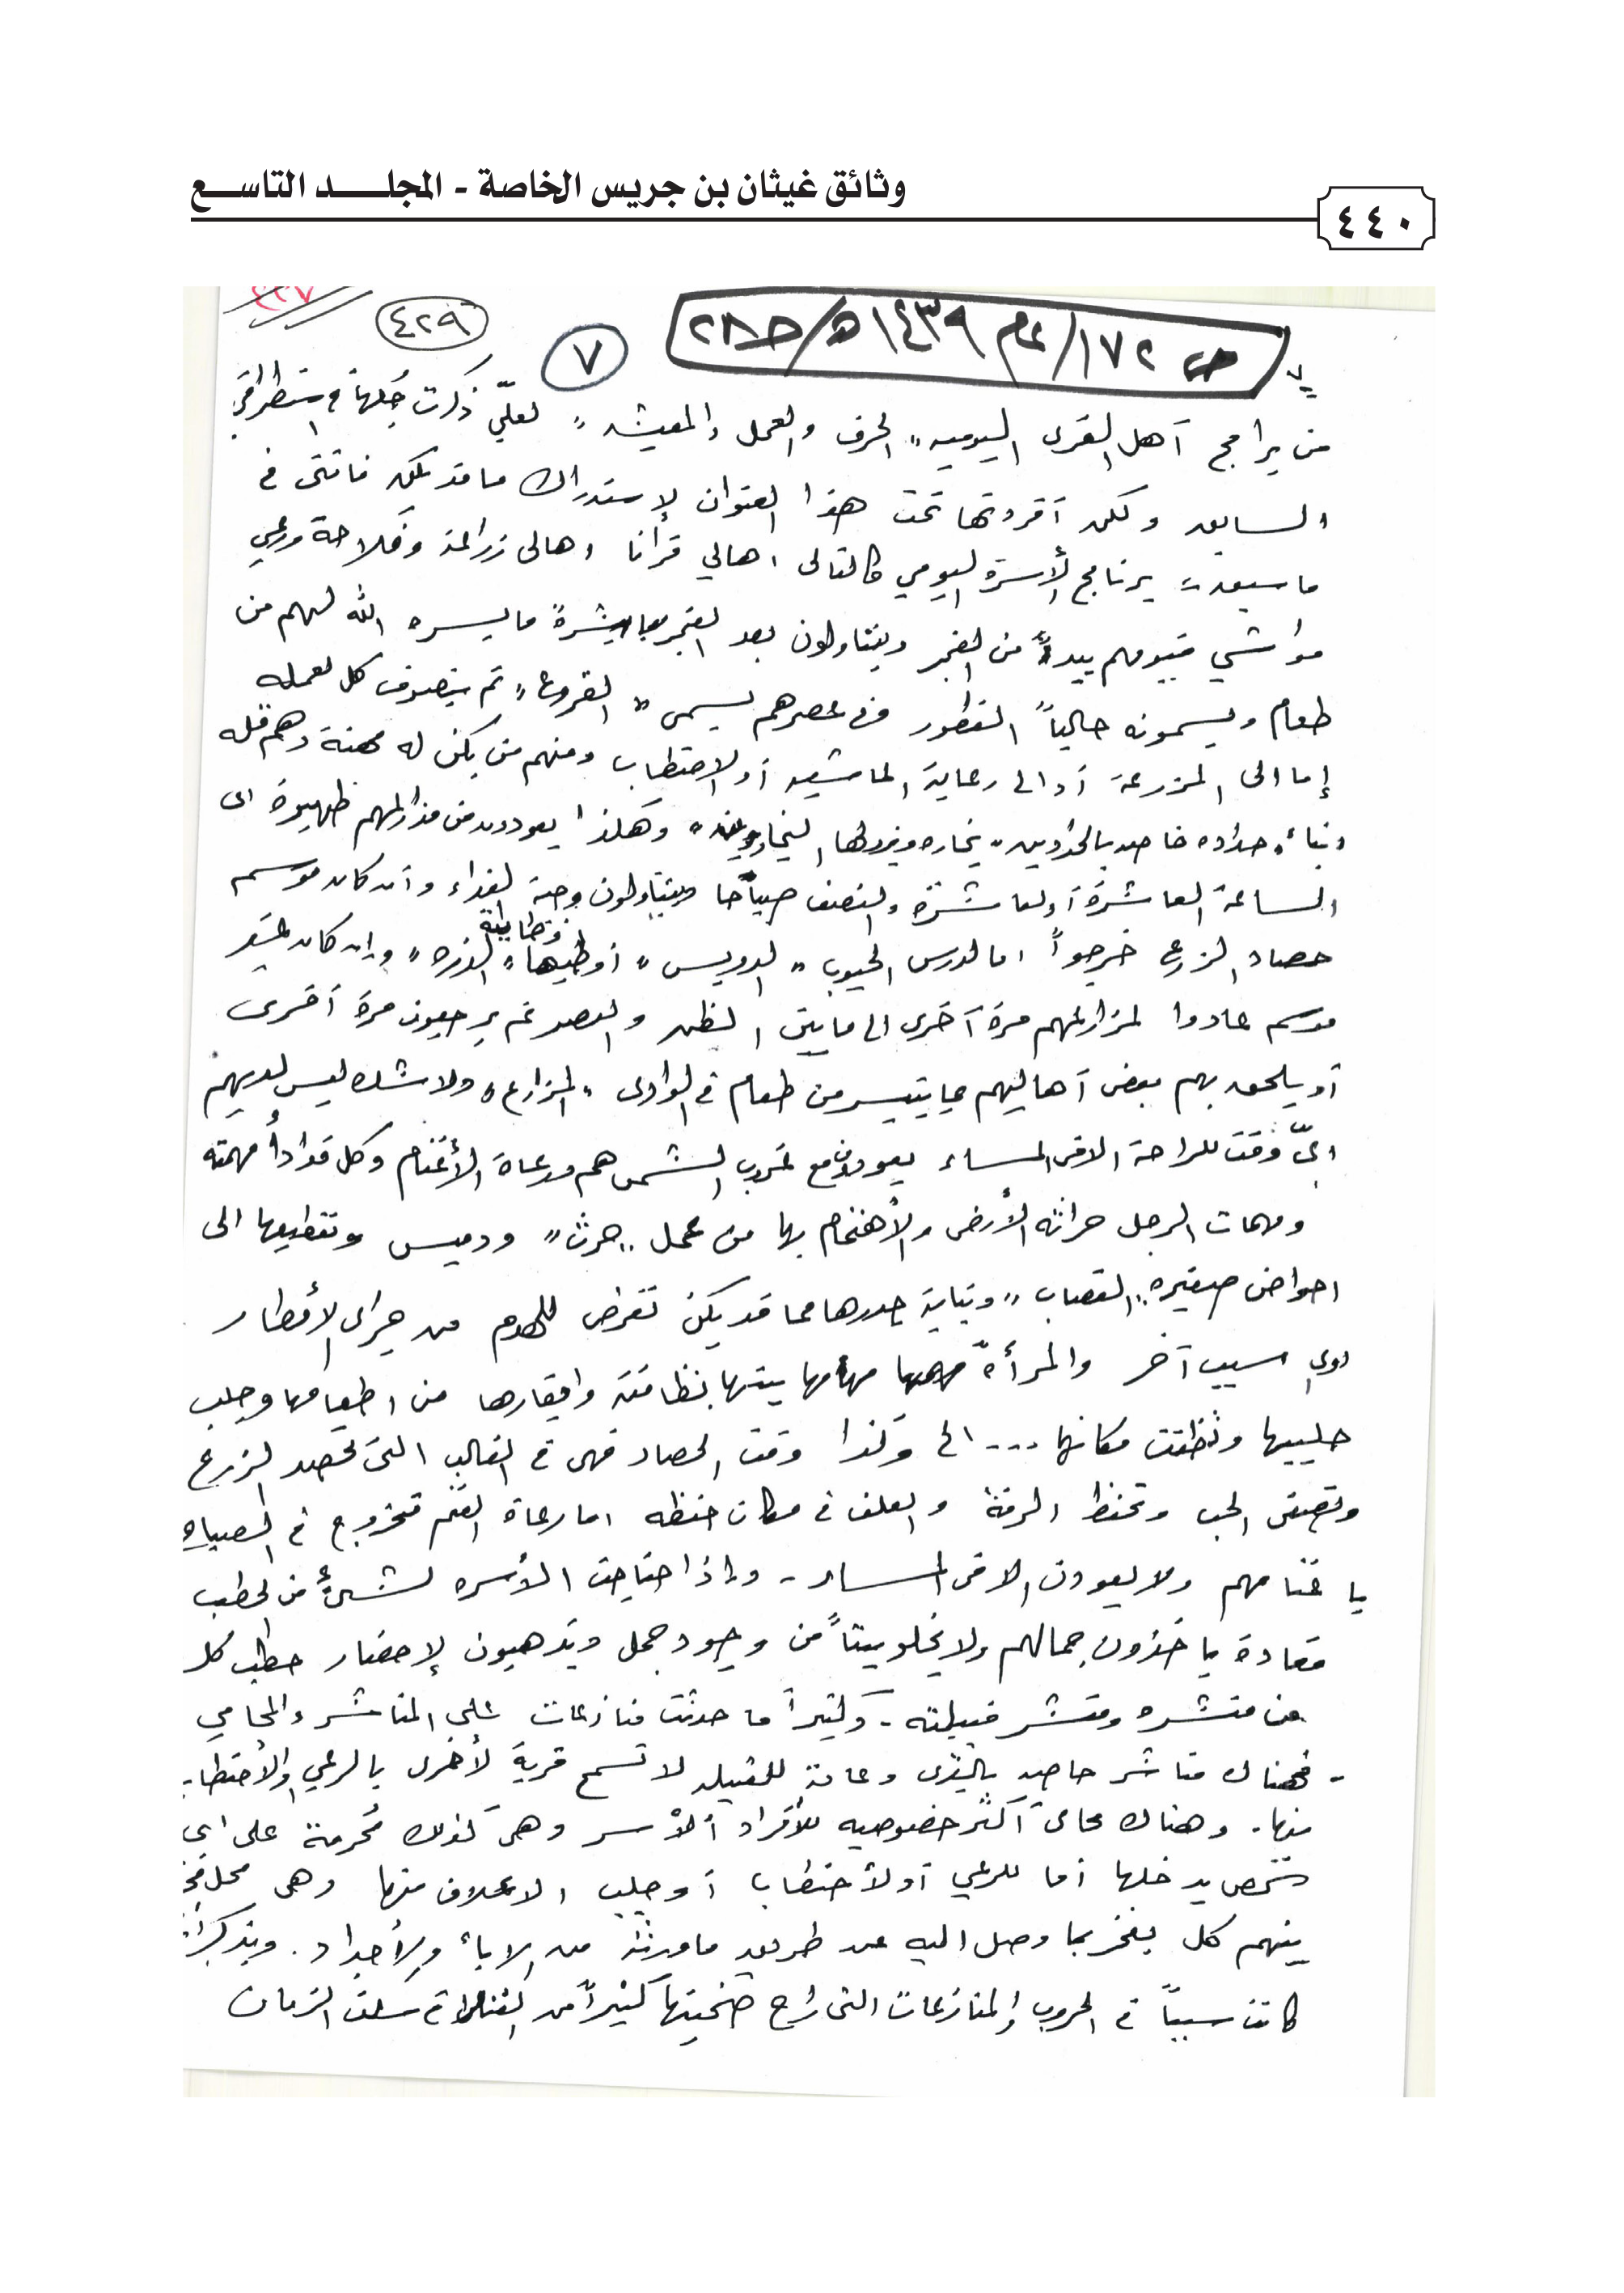 وثائق غيثان بن جريس الخاصة - المجلـــد التاســـع
٤٤٠
ص ١٧٢/ عام ١٤٣٩هـ/ حـ٢٨
٧
٤٢٩
من برامج أهل القرى اليوميه " الحرف والعمل والمعيشه " لعلّي ذكرت جُلها في استطرافي
السابق ولكن أفردتها تحت هذا العنوان لإستدراك ما قد يكن فاتني في
ما سبق برنامج الأسرة اليومي كالتالي اهالي قرانا اهالى زراعة وفلاحة ورعي
مواشي فيومهم يبدأ من الفجر ويتناولون بعد الفجر مباشرةً ما يسره الله لهم من
طعام ويسمونه حالياً الفطور في عصرهم يسمى " القروع " ثم ينصرف كل لعمله
إما الى المزرعة أو الى رعاية الماشيه أو الاحتطاب ومنهم من يكن له مهنة وهم قله
وبناء وحداده خاصه بالحدادين نجاره ويزاولها النجارين وهكذا يعودون من مزارعهم ظهيرة اى
الساعة العاشرة أو العاشرة والنصف صباحا ويتناولون وجبة الغداء وأن كان موسم
حصاد الزرع خرجواً اما لدرس الحبوب " الدويس " أو " الذره " وإن كان غير
موسم عادوا لمزارعهم مرة آخرى الى ما بين الظهر والعصر ثم يرجعون مرة أخرى
أو يلحق بهم بعض أهاليهم بما يتيسر من طعام في الوادى " المزارع " ولا شك ليس لديهم
ايّ وقت للراحة الا في المساء يعودون مع غروب الشمس هم ورعاة الأغنام وكل قد أدأ مهمته
ومهمات الرجل حراثه الأرض والأهتمام بها من عمل " حرث " ودميس وتقطيعها الى
احواض صغيره " القصاب " وبناية جدرها مما قد يكن تعرض للهدم من جراى الأمطار
اوي سبب آخر والمرأة مهامها بيتها بنظافته وابقارها من اطعامها وجلب
حليبها ونظافت مكانها ... الخ وكذا وقت الحصاد فهى في الغالب التى تحصد الزرع
وتصفى الحب وتحفظ الرفة والعلف في مكان حفظه اما رعاة الغنم فخروج في الصباح
باغنامهم ولا يعودون الا في المساء - وإذا احتاجت الأسره لشئ من الحطب
فعادة ياخذون جمالهم ولا يخلو بيتاً من وجود جمل ويذهبون لإحضار حطب كل
من منشره ومنشر قبيلته - وكثيراً ما حدثت منازعات على المناشر والمحامي
- فهناك مناشر خاصه بالقرى وعامة للقبيله لا تسمح قرية لأخرى بالرعي والأحتطاب
منها. وهناك محامى أكثر خصوصيه للأفراد أو الأسر وهى كذلك مُحرمة على اى
شخص يدخلها أما للرعي أو لأحتطاب أو جلب الاعلاف منها وهى محل فخر
بينهم كل يفخر بما وصل اليه عن طريق ما ورثه من الاباء والأجداد.
كانت سبباً في الحروب والمنازعات التى راح ضحيتها كثيراً من في سلف الزمان